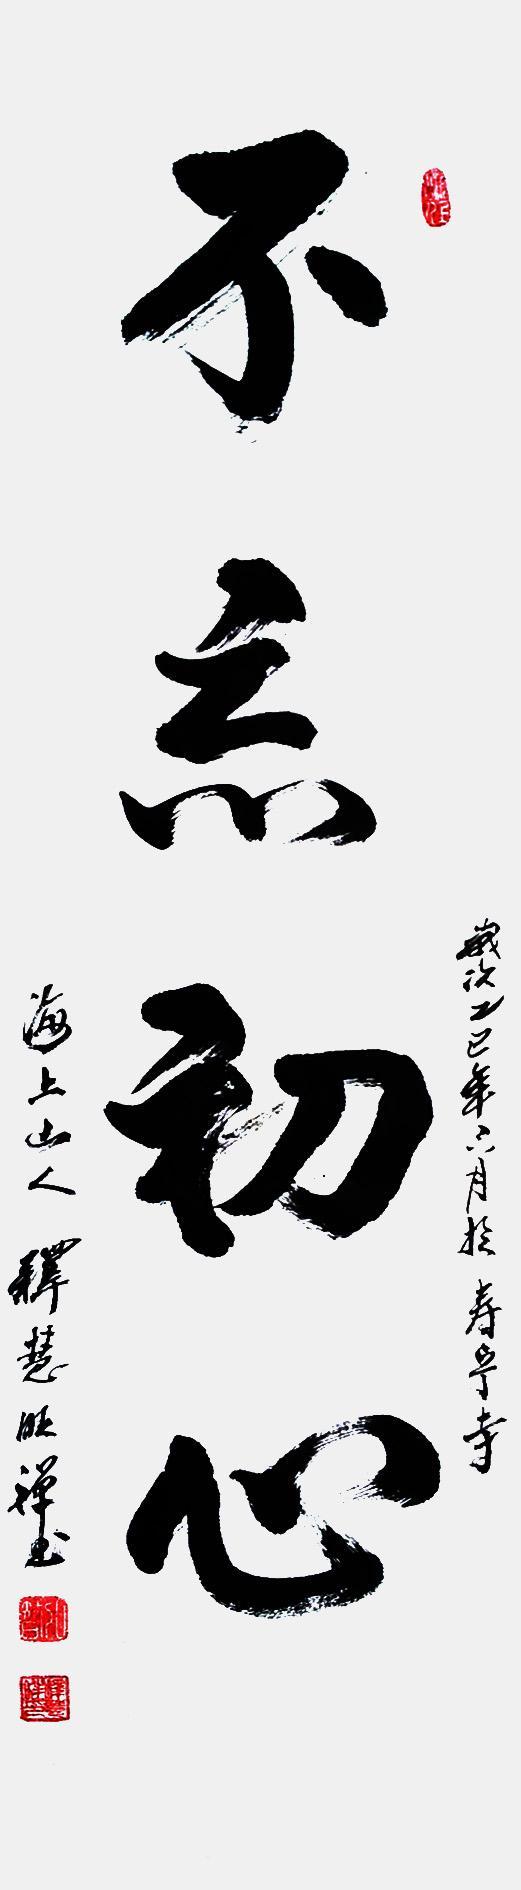 不忘初心
歲次乙巳年六月於寿宁寺
海上山人 釋慧旺禅书